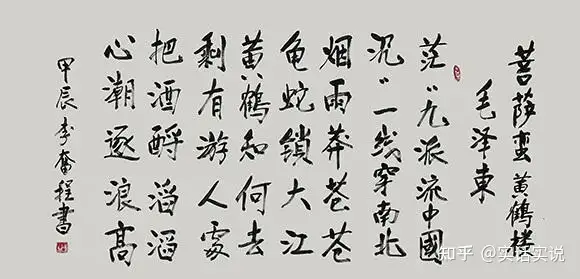 菩萨蛮 黄鹤楼
毛泽東
茫〃九派流中國
沉〃一线穿南北
烟雨莽苍苍
龟蛇鎖大江
黄鹤知何去
剩有游人處
把酒酹滔滔
心潮逐浪高
甲辰李奮程書
知乎 @实话实说